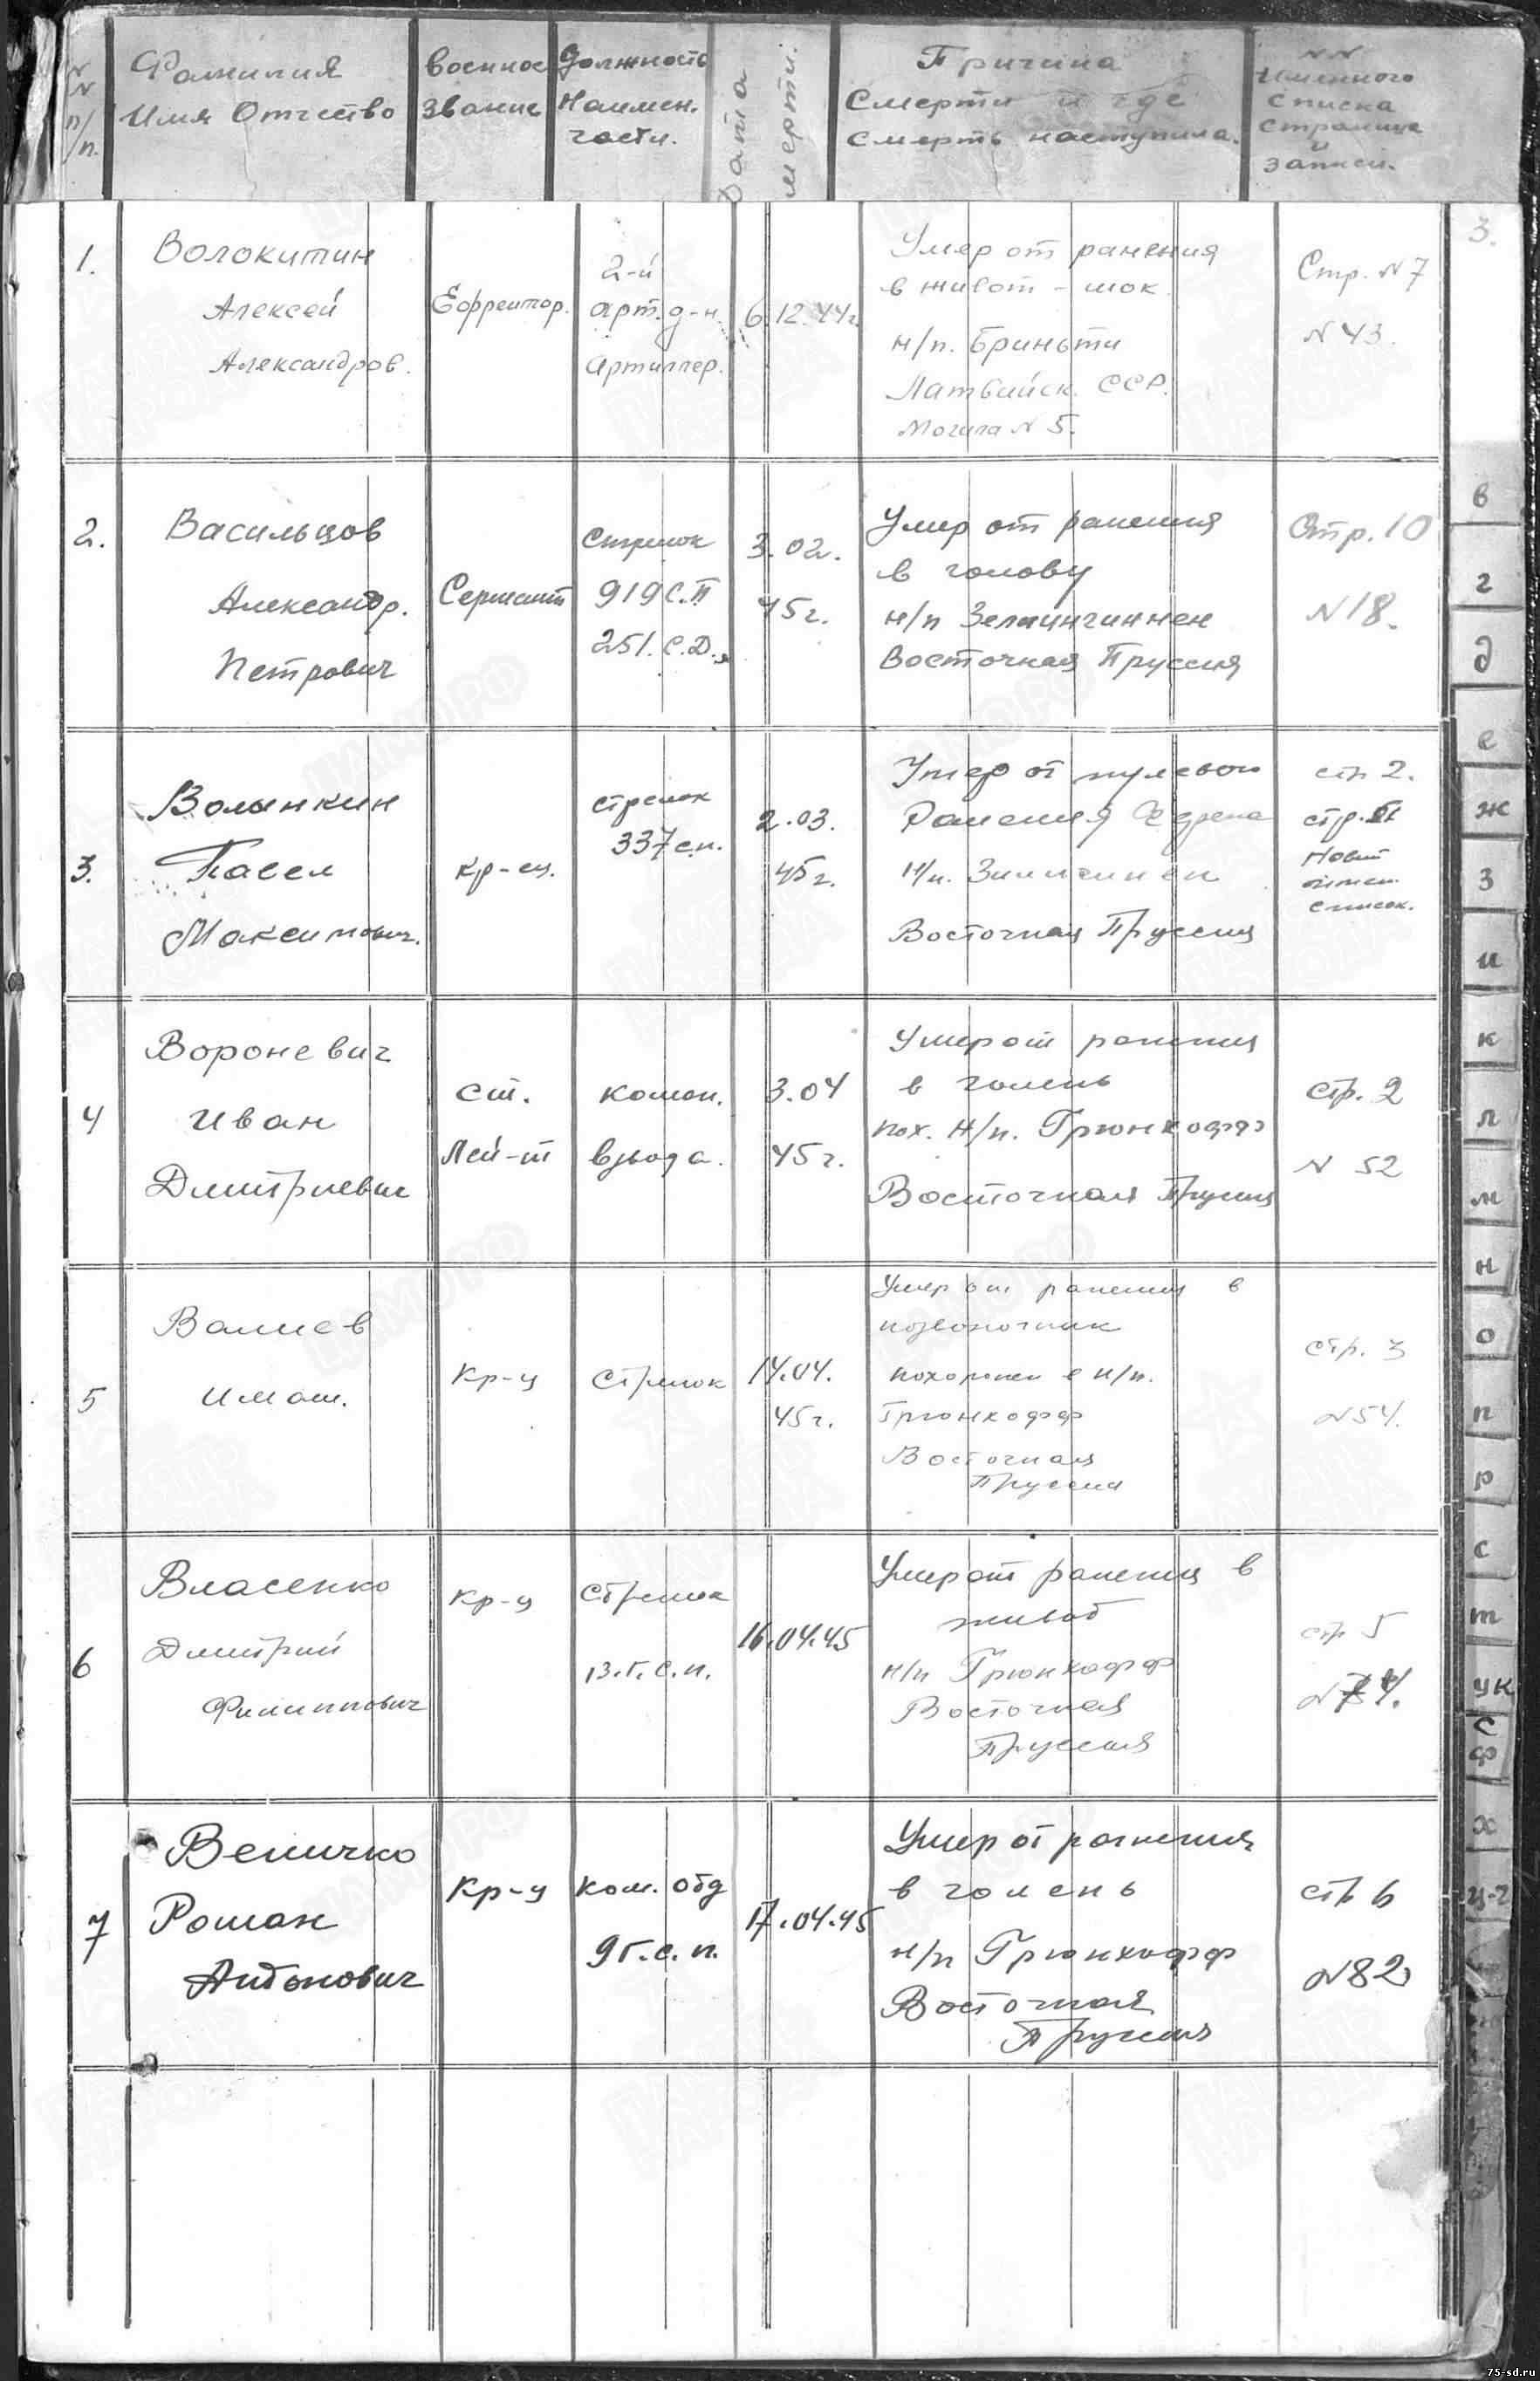 NN п/п.
Фамилия
Имя Отчество
Военное
Звание
Должность
Наимен.
части.
Дата
смерти.
Причина
Смерти и где
Смерть наступила.
NN
Именного
списка
страница
и
записи.
3.
1.
Волокитин
Алексей
Александров.
Ефрейтор.
2-й
арт. д-н.
Артиллер.
6.12.44г.
Умер от ранения
в живот - шок.
н/п. Бриньти
Латвийск. ССР.
Могила N 5.
Стр. N 7
N 43.
2.
Васильцов
Александр.
Петрович
Сержант
Стрелок
919 С.П
251. С.Д.
3.02.
45г.
Умер от ранения
в голову
н/п
Восточная Пруссия
Стр. 10
N 18.
3.
Волынкин
Павел
Максимович.
кр-ец.
стрелок
337 с.п.
2.03.
45г.
Умер от пулевого
Ранения бедра
н/п.
Восточная Пруссия
стр 2.
стр.
Новый
список.
4
Вороневич
Иван
Дмитриевич
Ст.
Лей-т
коман.
взвода.
3.04
45г.
Умер от ранения
в голень
пох. н/п. Грюнхофф
Восточная Пруссия
стр. 2
N 52
5
Валиев
Имаш.
Кр-ц
Стрелок
14.04.
45г.
Умер от ранения в
позвоночник
похоронен в н/п.
Грюнхофф
Восточная
Пруссия
стр. 3
N 54.
6
Власенко
Дмитрий
Филиппович
Кр-ц
Стрелок
г.с.п.
16.04.45
Умер от ранения в
живот
н/п Грюнхофф
Восточная
Пруссия
стр 5
N 74.
7
Величко
Роман
Антонович
Кр-ц
Ком. отд
9 г.с.п.
17.04.45
Умер от ранения
в голень
н/п Грюнхофф
Восточная
Пруссия
стр 6
N 82
в
г
д
е
ж
з
и
к
л
м
н
о
п
р
с
т
ф
х
75-sd.ru